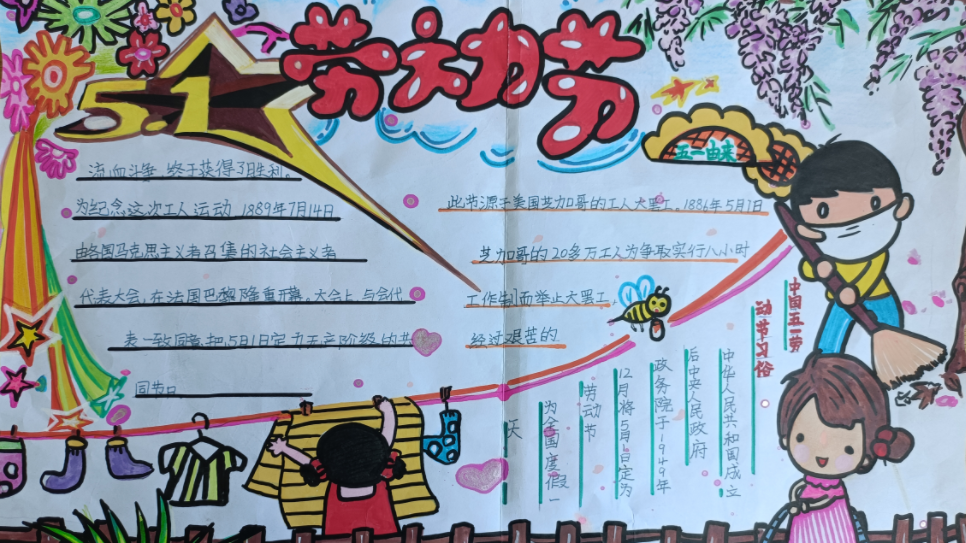 5.1
劳动节
五一由来
此节源于美国芝加哥的工人大罢工。1886年5月1日
芝加哥的20多万工人为争取实行八小时
工作制而举止大罢工,
经过艰苦的
流血斗争,终于获得了胜利。
为纪念这次工人运动 1889年7月14日
由各国马克思主义者召集的社会主义者
代表大会,在法国巴黎隆重开幕。大会上,与会代
表一致同意把,5月1日定为无产阶级的共
同节日
中国五一劳
动节习俗
中华人民共和国成立
后中央人民政府
政务院于1949年
12月将5月1日定为
劳动节
为全国度假一
天